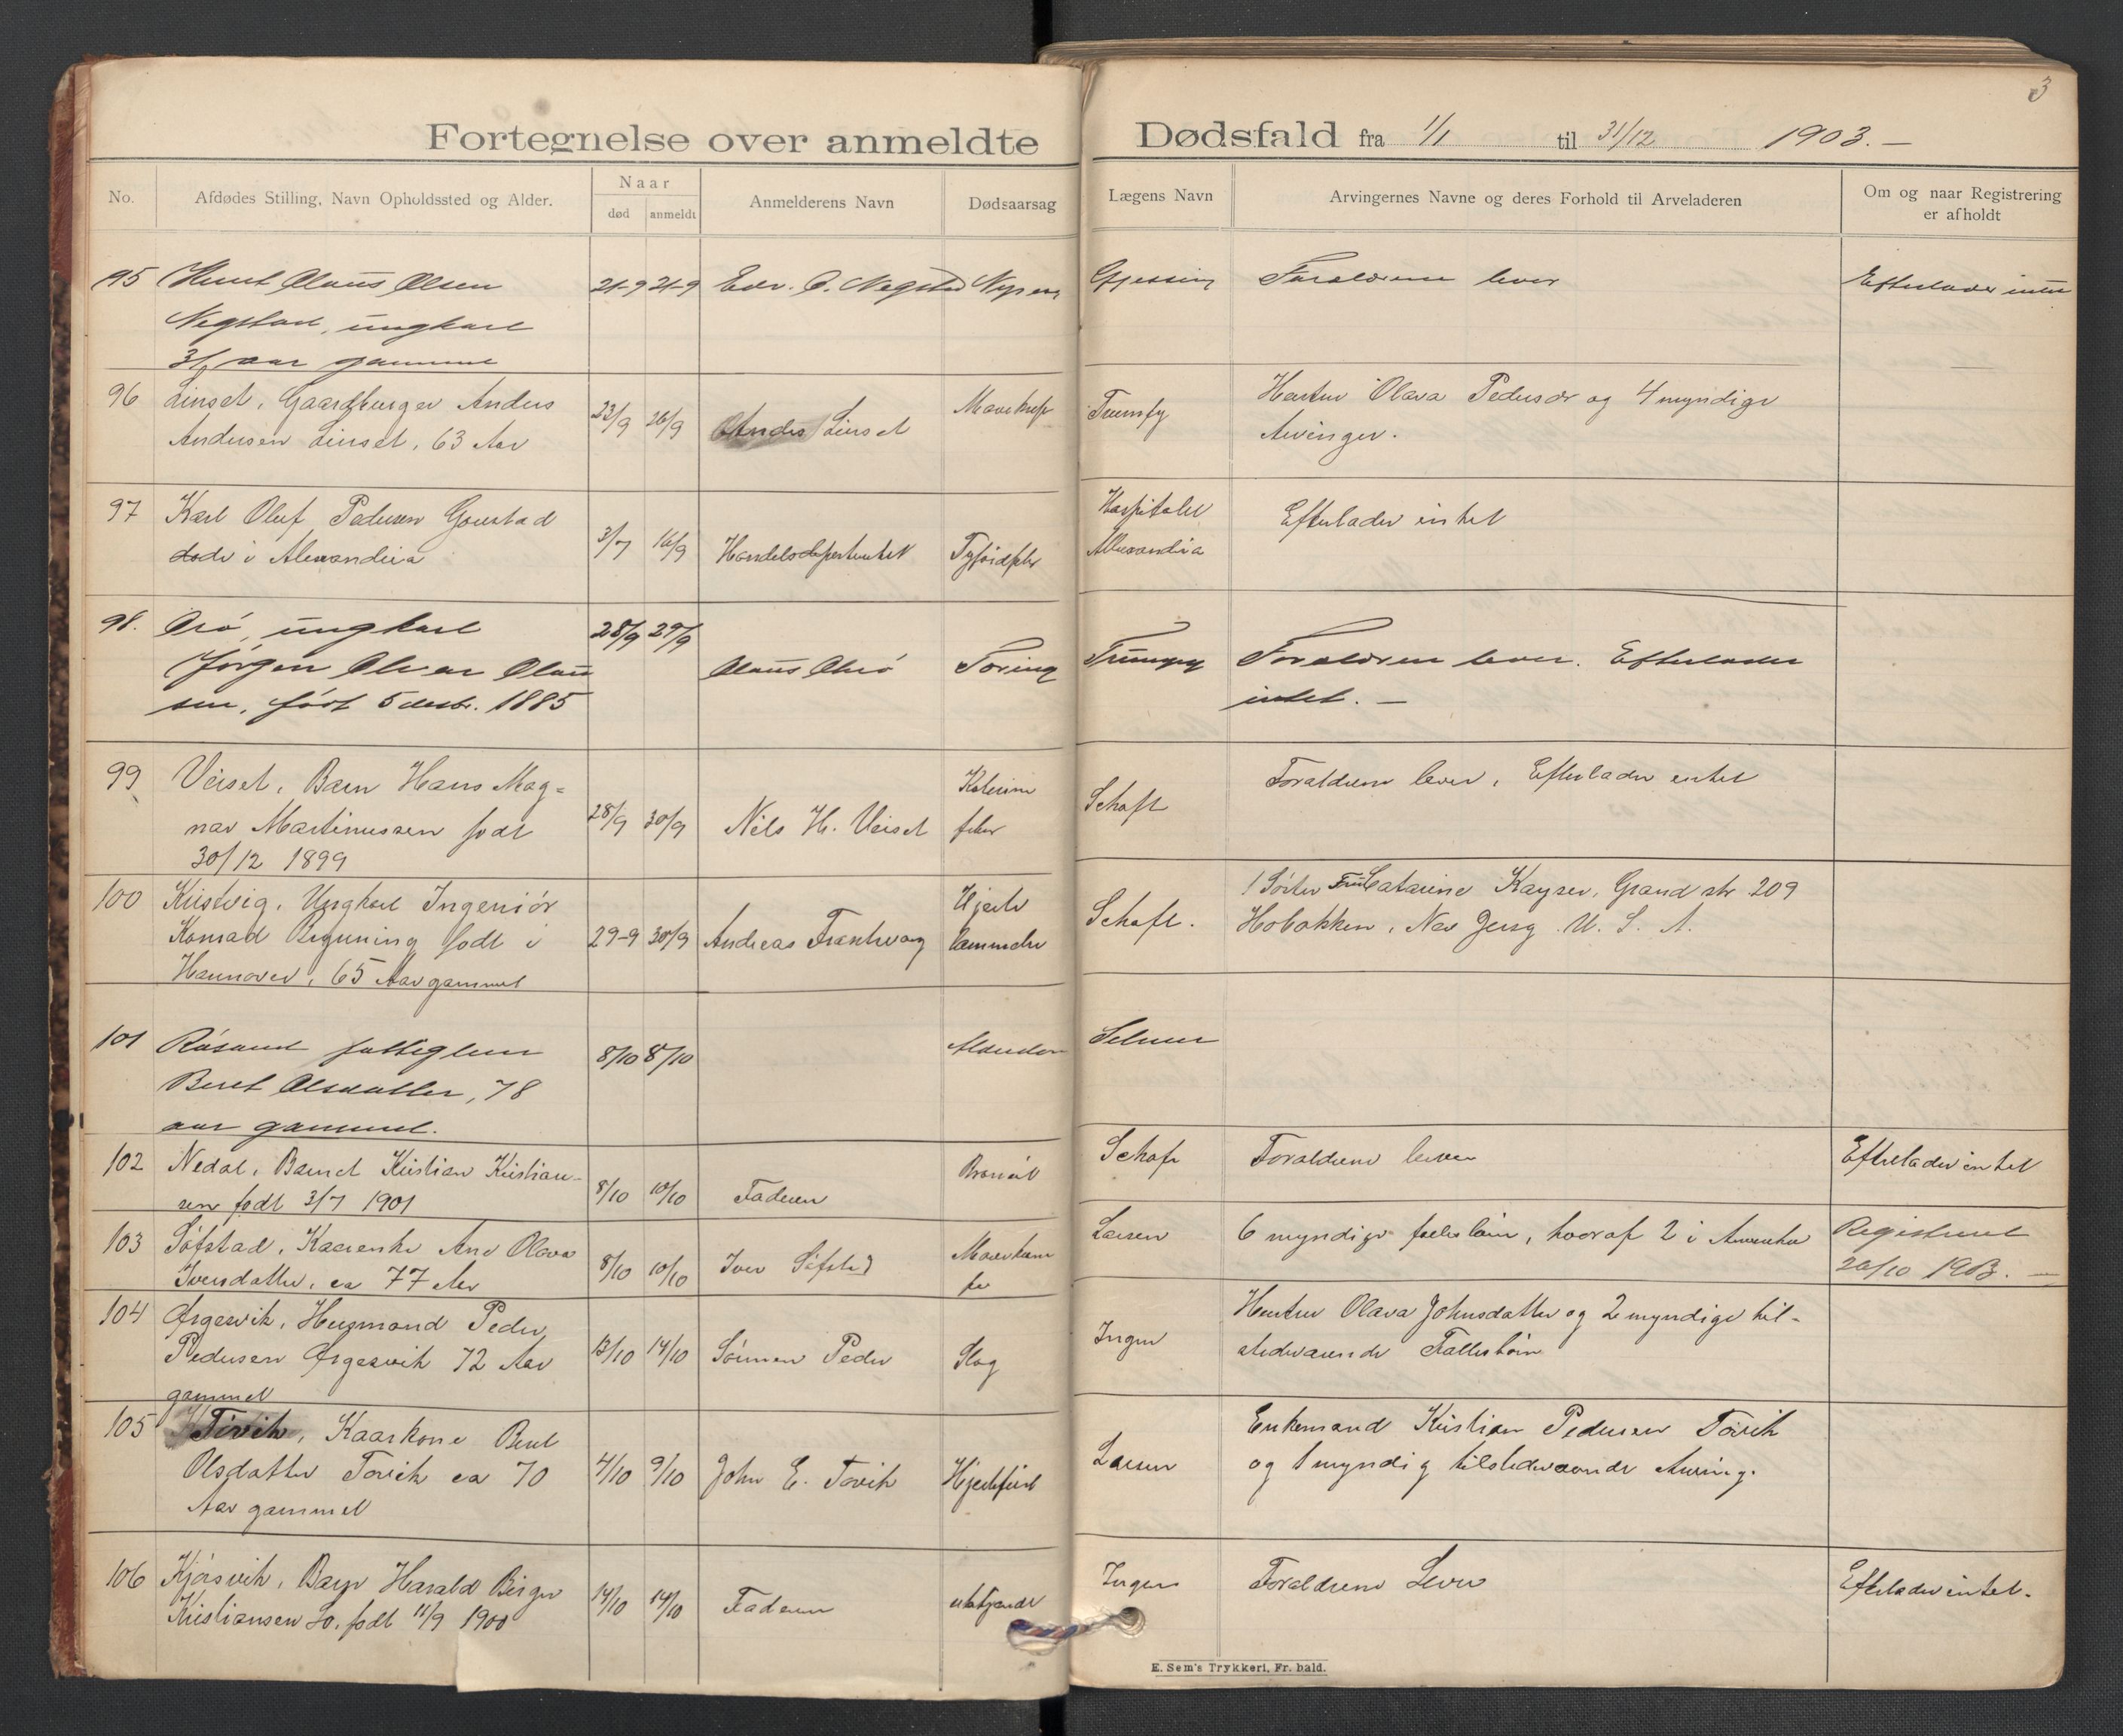 3
Fortegnelse over anmeldte Dødsfald fra 1/1 til 31/12 1903. –
No.
Afdødes Stilling, Navn Opholdssted og Alder.
Naar
død
anmeldt
Anmelderens Navn
Dødsaarsag
Lægens Navn
Arvingernes Navne og deres Forhold til Arveladeren
Om og naar Registrering
er afholdt
95 Knut Olaus Olsen
Negstad, ungkarl
aar gammel
Edv. O. Negstad
Gjessing
Forældrene lever
Efterlader intet
96 Linset, Gaardbruger Anders
Andersen Linset, 63 Aar
23/9 26/9
Anders Linset
Mavekræft
Trumpy
Hustru Olava Pedersdr og 4 myndige
Arvinger.
97 Karl Oluf Pedersen
døde i Alexandria
3/7 16/9
Handelsdepartentet
Tyfoidfeber
Hospitalet
Alexandria
Efterlader intet
98. ungkarl
Jørgen Olaus
sen, født 5 desbr. 1885
28/9 29/9
Olaus
Tæring
Trumpy
Forældrene lever. Efterlader
intet. –
99 Veiset, Barn Hans Mag=
nar Martinussen født
30/12 1899
28/9 30/9
Nils H. Veiset
feber
Schaft
Forældrene lever, Efterlader intet
100 Kristvig, Ungkarl Ingeniør
Konrad født i
Hannover, 65 Aar gammel
29-9 30/9
Andreas
Hjerte
lammelse
Schaft.
1 Søster Fru Catarine Kayser, Grand str 209
Hobokken, New Jersy U. S. A.
101 fattiglem
Beret Olsdatter, 78
aar gammel.
8/10 8/10
Alderdom
Selmer
102 Nedal, Barnet Kristian Kristian-
sen født 3/7 1901
8/10 10/10
Faderen
Schaft
Forældrene lever
Efterlader intet
103 Søfstad, Kaarenke Ane Olava
Iversdatter, ca 77 Aar
8/10 10/10
Iver Søfstad
Larsen
6 myndige fælesbørn, hvoraf 2 i Amerika
Registreret
20/10 1903. –
104 Ørgesvik, Husmand Peder
Pedersen Ørgesvik 72 Aar
gammel
13/10 14/10
Sønnen Peder
Slag
Ingen
Hustru Olava Johnsdatter og 2 myndige til-
stedeværende Fællesbørn
105 Tøvik, Kaarkone Beret
Olsdatter Tøvik ca 70
Aar gammel
4/10 9/10
John E. Tøvik
Hjertefeil
Larsen
Enkemand Kristian Pedersen Tøvik
og 1 myndig tilstedeværende Arving.
106 Kjørsvik, Barn Harald Birger
Kristiansen do. født 11/9 1900
14/10 14/10
Faderen
ubekjendt
Ingen
Forældrene Lever
Efterlader intet.
E. Sem's Trykkeri, Fr. hald.